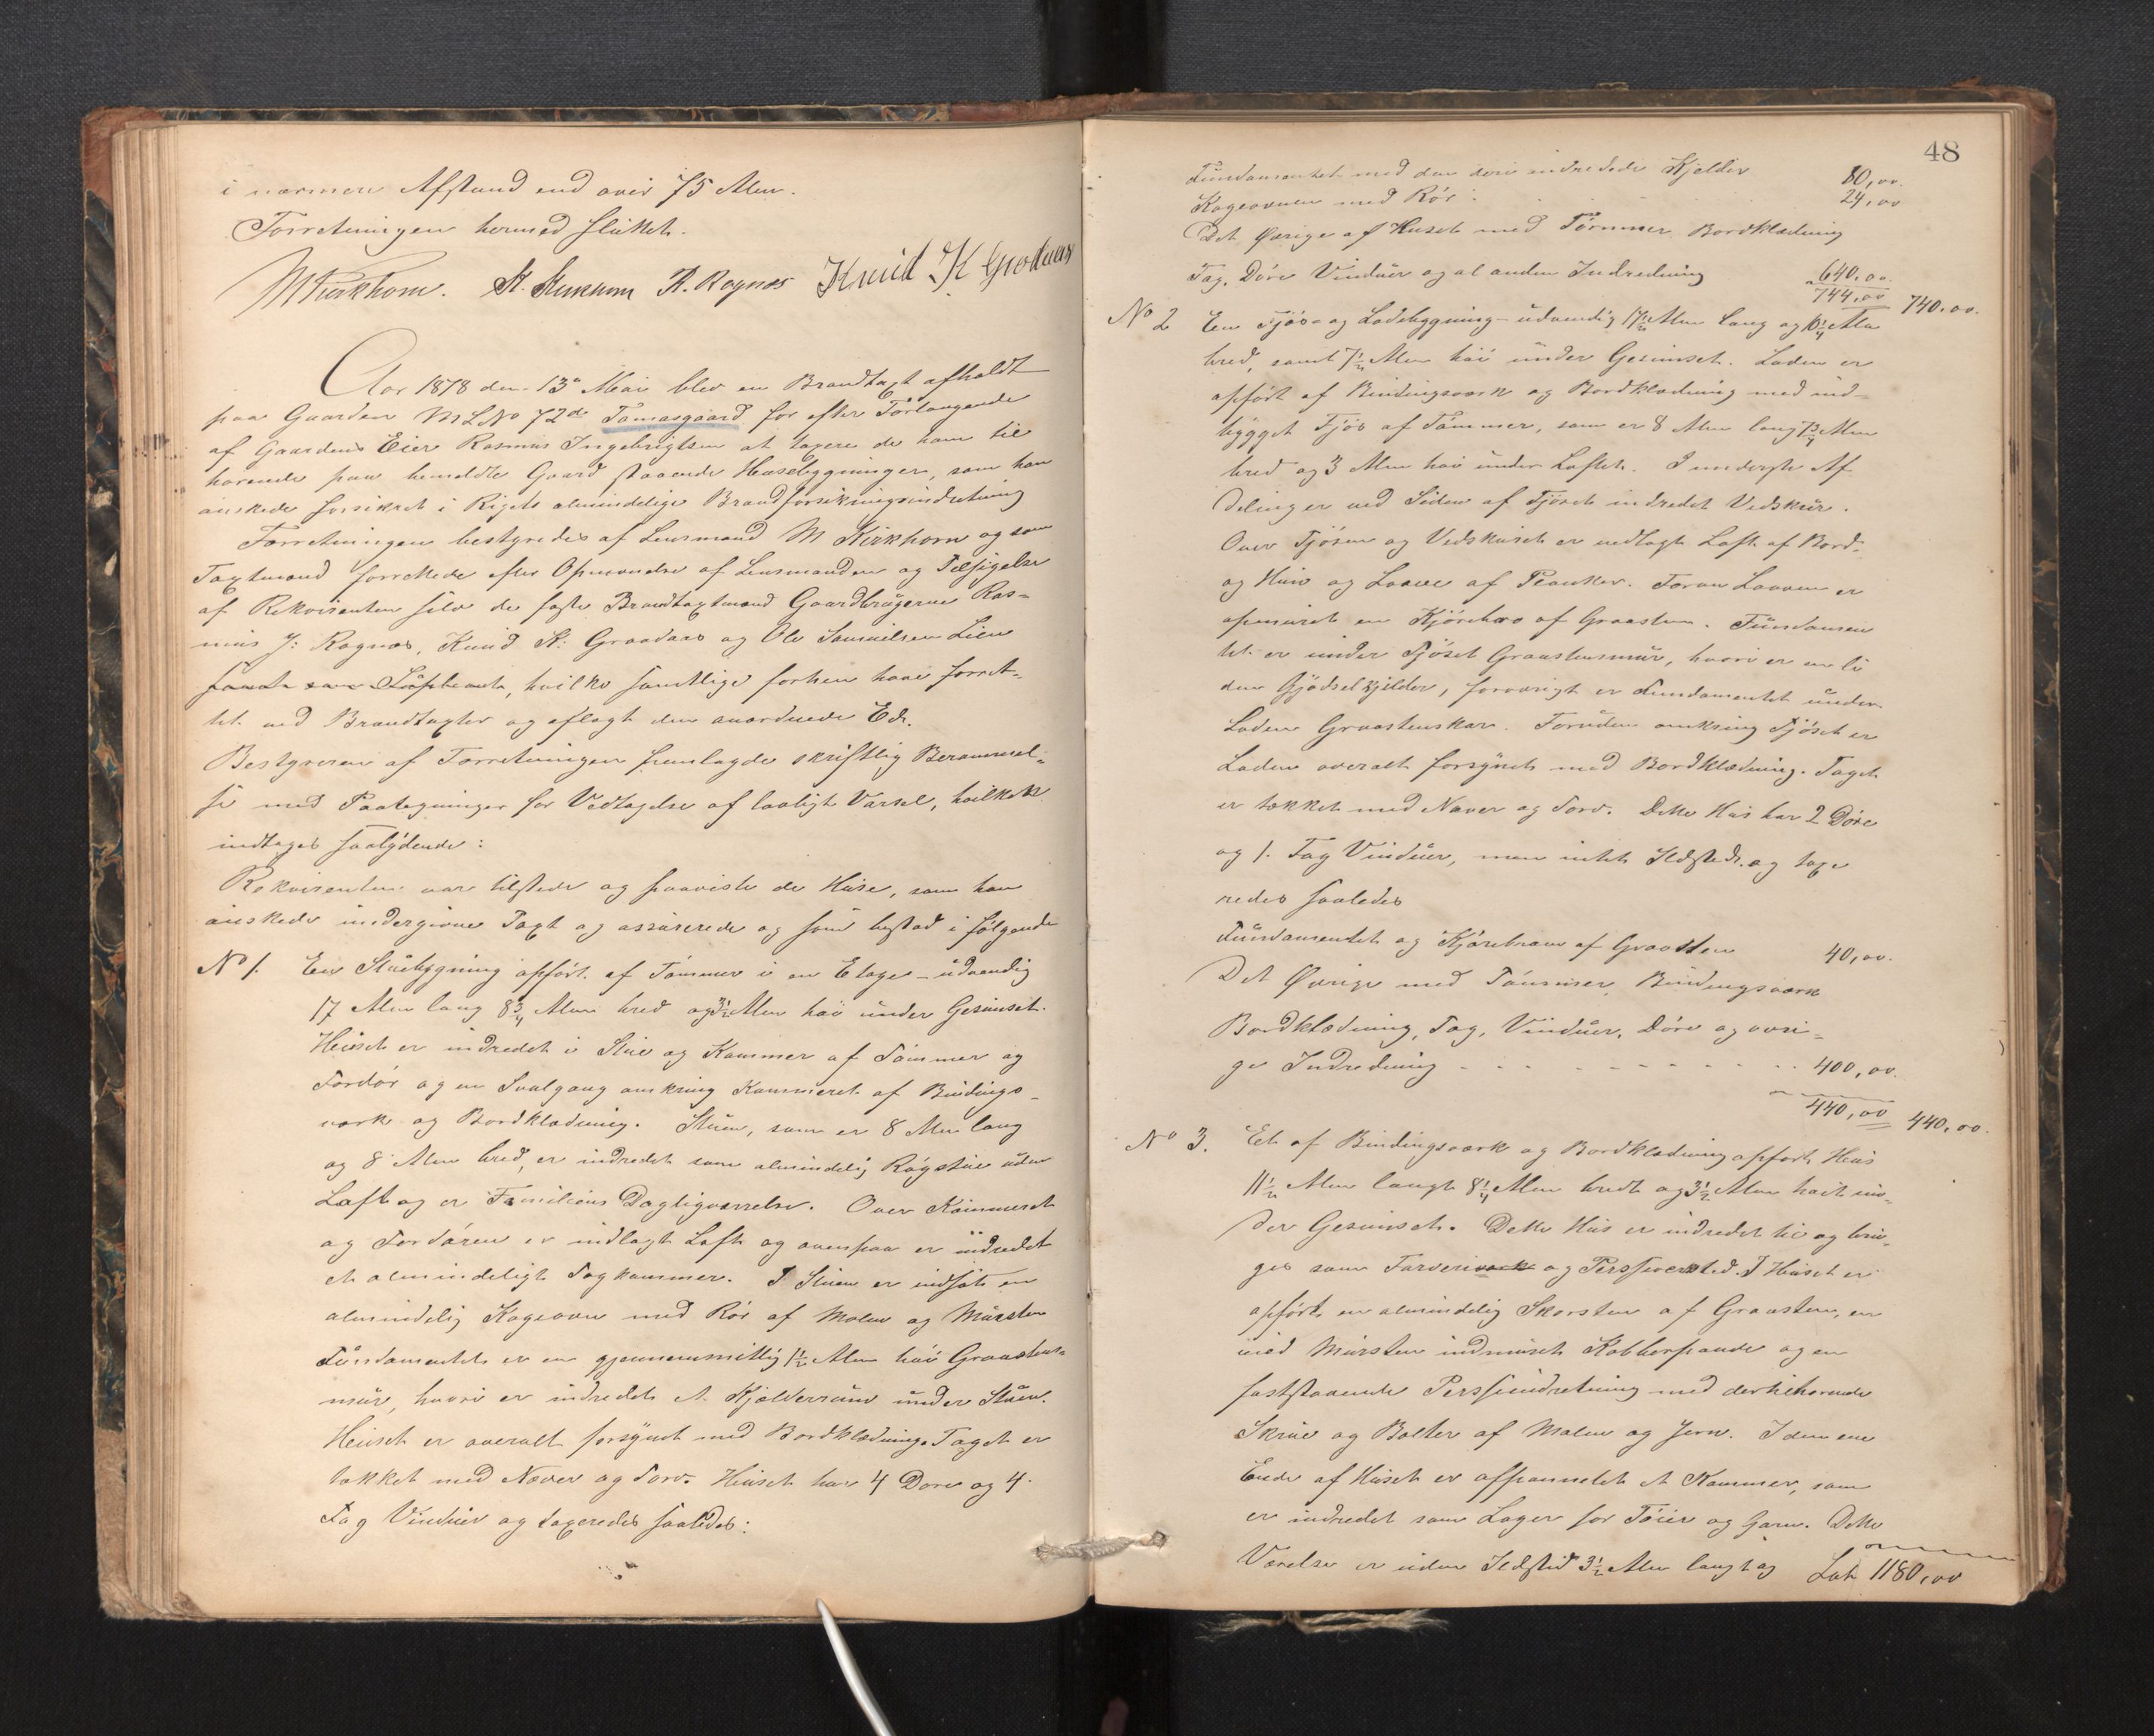 i nærmere Afstand end over 75 Alen.
Forretningen hermed sluttet.
M Kirkhorn. R. Rognæs Knud K Graadaas
Aar 1878 den 13de Mai blev en Brandtaxt afholdt
paa Gaarden ML No 72d Tomasgaard for efter Forlangende
af Gaardens Eier Rasmus Ingebrigtsen at taxere de ham til
hørende paa bemeldte Gaard staaende Husebygninger, som han
ønskede forsikret i Rigets almindelige Brandforsikringsindretning
Forretningen bestyredes af Lensmand M Kirkhorn og som
Taxtmænd forrettede efter Opnævnelse af Lensmanden og Tilsigelse
af Rekvirenten selv de faste Brandtaxtmænd Gaardbrugerne Ras=
mus J: Rognæs, Knud K: Graadaas og Ole Samuelsen Lien
hvilke samtlige forhen have forret=
tet ved Brandtaxter og aflagt den anordnede Ed.
Bestyreren af Forretningen fremlagde skriftlig Berammel=
se med Paategninger for Vedtagelse af lovligt Varsel, hvilket
indtages saalydende:
Rekvirenten var tilstede og paaviste de Huse, som han
ønskede undergivne Taxt og assurerede og som bestod i følgende
No 1. En Stuebygning opført af Tømmer i en Etage – udvendig
17 Alen lang 8 3/4 Alen bred og 3 1/2 Alen høi under Gesimset.
Huset er indredet i Stue og Kammer af Tømmer og
Fordør og en Svalgang omkring Kammeret af Bindings=
værk og Bordklædning. Stuen, som er 8 Alen lang
og 8 Alen bred, er indredet som almindelig Røgstue uden
Loft og er Familiens Dagligværrelse. Over Kammeret
og Fordøren er indlagt Loft og ovenpaa er indredet
et almindeligt Tagkammer. I Stuen er indsat en
almindelig Kogeovn med Rør af Malm og Mursten
Fundamentet er en gjennemsnitlig 1 1/2 Alen høi Graastens=
mur, hvori er indredet et Kjelderrum under Stuen.
Huset er overalt forsynet med Bordklædning. Taget er
tækket med Næver og Torv. Huset har 4 Døre og 4.
Fag Vinduer og taxeredes saaledes:
48
Fundamentet med den deri indredede Kjelder 80,00.
Kogeovnen med Rør. 24,00
Det Øvrige af Huset med Tømmer Bordklædning
Tag, Døre Vinduer og al anden Indredning 640,00
744,00 740.00.
No 2 En Fjøs- og Ladebygning – udvendig 17 1/2 Alen lang og 10 1/4 Alen
bred, samt 7 1/2 Alen høi under Gesimset. Laden er
opført af Bindingsværk og Bordklædning med ind=
bygget Fjøs af Tømmer, som er 8 Alen lang 7 3/4 Alen
bred og 3 Alen høi under Loftet. I underste Af
delinger ved Siden af Fjøset indredet Vedskur.
Over Fjøsen og Vedskuret er nedlagt Loft af Bord=
og Huse og Laave af Planker. Foran Laaven er
opmuret en Kjørebro af Graasten. Fundamen
tet er under Fjøset Graastensmur, hvori er en li
den Gjødselkjelder, forøvrigt er Fundamentet under
Laden Graastenskar. Foruden omkring Fjøset er
Laden overalt forsynet med Bordklædning. Taget
er tækket med Næver og Torv. Dette Hus har 2 Døre
og 1. Fag Vinduer, men intet Ildsted. og taxe
redes saaledes
Fundamentet og Kjørebroen af Graasten 40,00.
Det Øvrige med Tømmer, Bindingsværk
Bordklædning, Tag, Vinduer, Døre og øvri=
ge Indredning - - - - - - - - 400,00.
440,00 440,00.
No 3. Et af Bindingsværk og Bordklædning opført Hus
11 1/2 Alen langt 8 1/4 Alen bredt og 3 1/2 Alen høit un=
der Gesimset. Dette Hus er indredet til og bru=
ges som Farveri og Perssested. I Huset er
opført en almindelig Skorsten af Graasten, en
med Mursten indmuret Kobberpande og en
faststaaende Persseindretning med dertilhørende
Skrue og Bolter af Malm og Jern. I den ene
Ende af Huset er afpannelet et Kammer, som
er indredet som Lager for Tøier og Garn. Dette
Værelse er uden Ildsted 3 1/2 Alen langt og Lat. 1180,00